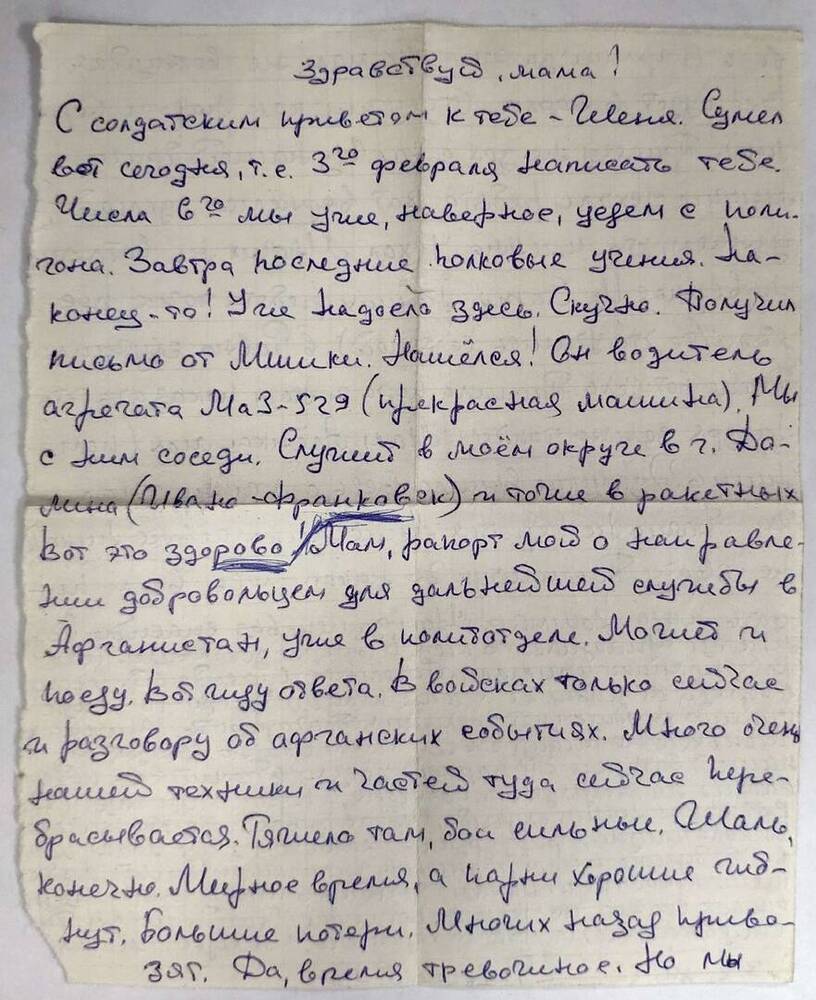 Здравствуй, мама!
С солдатским приветом к тебе - Женя. Сумел
вот сегодня, т.е. 3го февраля написать тебе.
Числа 6го мы уже, наверное, уедем с поли-
гона. Завтра последние полковые учения. На-
конец-то! Уже надоело здесь. Скучно. Получил
письмо от Мишки. Нашёлся! Он водитель
агрегата МаЗ-529 (прекрасная машина). Мы
с ним соседи. Служит в моём округе в г. До-
лина (Ивано-Франковск) и тоже в ракетных
Вот это здорово! Мам, рапорт мой о направле-
нии добровольцем для дальнейшей службы в
Афганистан, уже в политотделе. Может и
поеду. Вот жду ответа. В войсках только сейчас
и разговору об афганских событиях. Много очень
нашей техники и частей туда сейчас пере-
брасывается. Тяжело там, бои сильные. Жаль,
конечно. Мирное время, а парни хорошие гиб-
нут. Большие потери. Многих назад приво-
зят. Да, время тревожное. Но мы